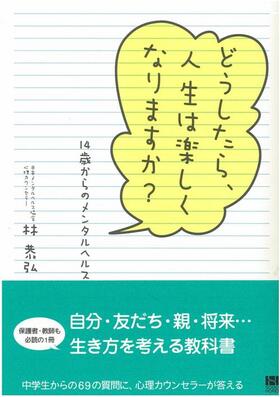 どうしたら、
人生は楽しく
なりますか?
14歳からのメンタルヘルス
日本メンタルヘルス協会
心理カウンセラー
林恭弘
保護者・教師も
必読の1冊
自分・友だち・親・将来…
生き方を考える教科書
中学生からの69の質問に、心理カウンセラーが答える